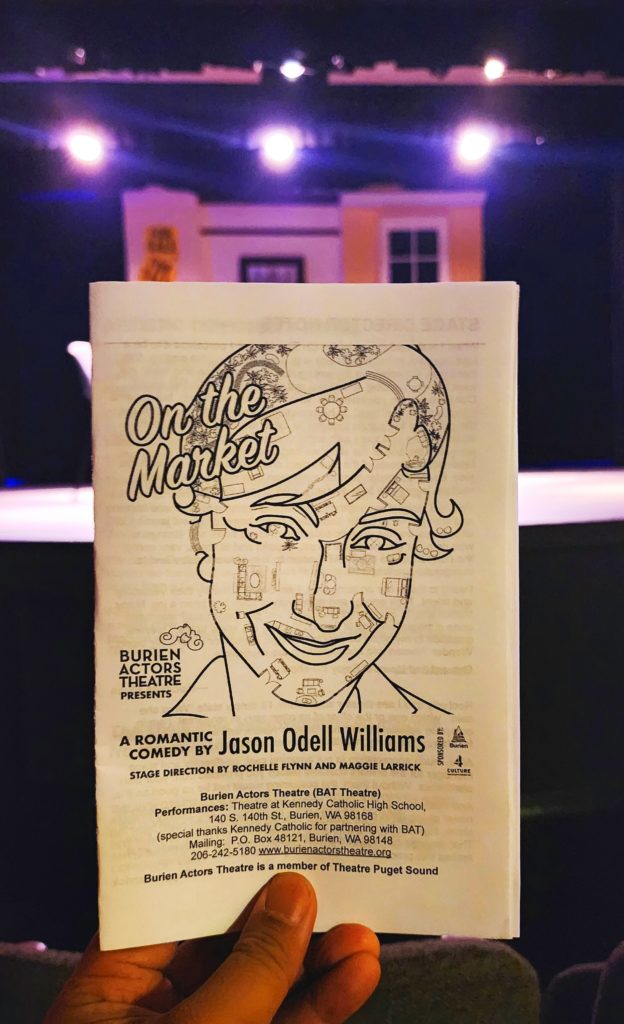 On the
Market
BURIEN
ACTORS
THEATRE
PRESENTS
A ROMANTIC
COMEDY BY Jason Odell Williams
STAGE DIRECTION BY ROCHELLE FLYNN AND MAGGIE LARRICK
SPONSORED BY:
Burien
4
CULTURE
Burien Actors Theatre (BAT Theatre)
Performances: Theatre at Kennedy Catholic High School,
140 S. 140th St., Burien, WA 98168
(special thanks Kennedy Catholic for partnering with BAT)
Mailing: P.O. Box 48121, Burien, WA 98148
206-242-5180 www.burienactorstheatre.org
Burien Actors Theatre is a member of Theatre Puget Sound